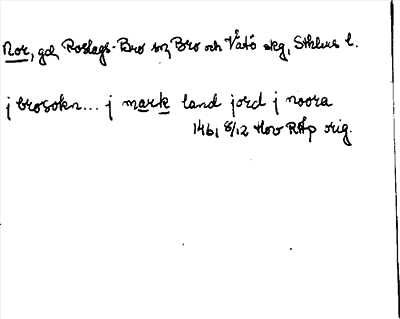 Nor, gd, Roslags-Bro sn, Bro och Vätö skg, Sthlms l.
j brosokn... j mark land jord j noora
1461 8/12 Hov RAp orig.